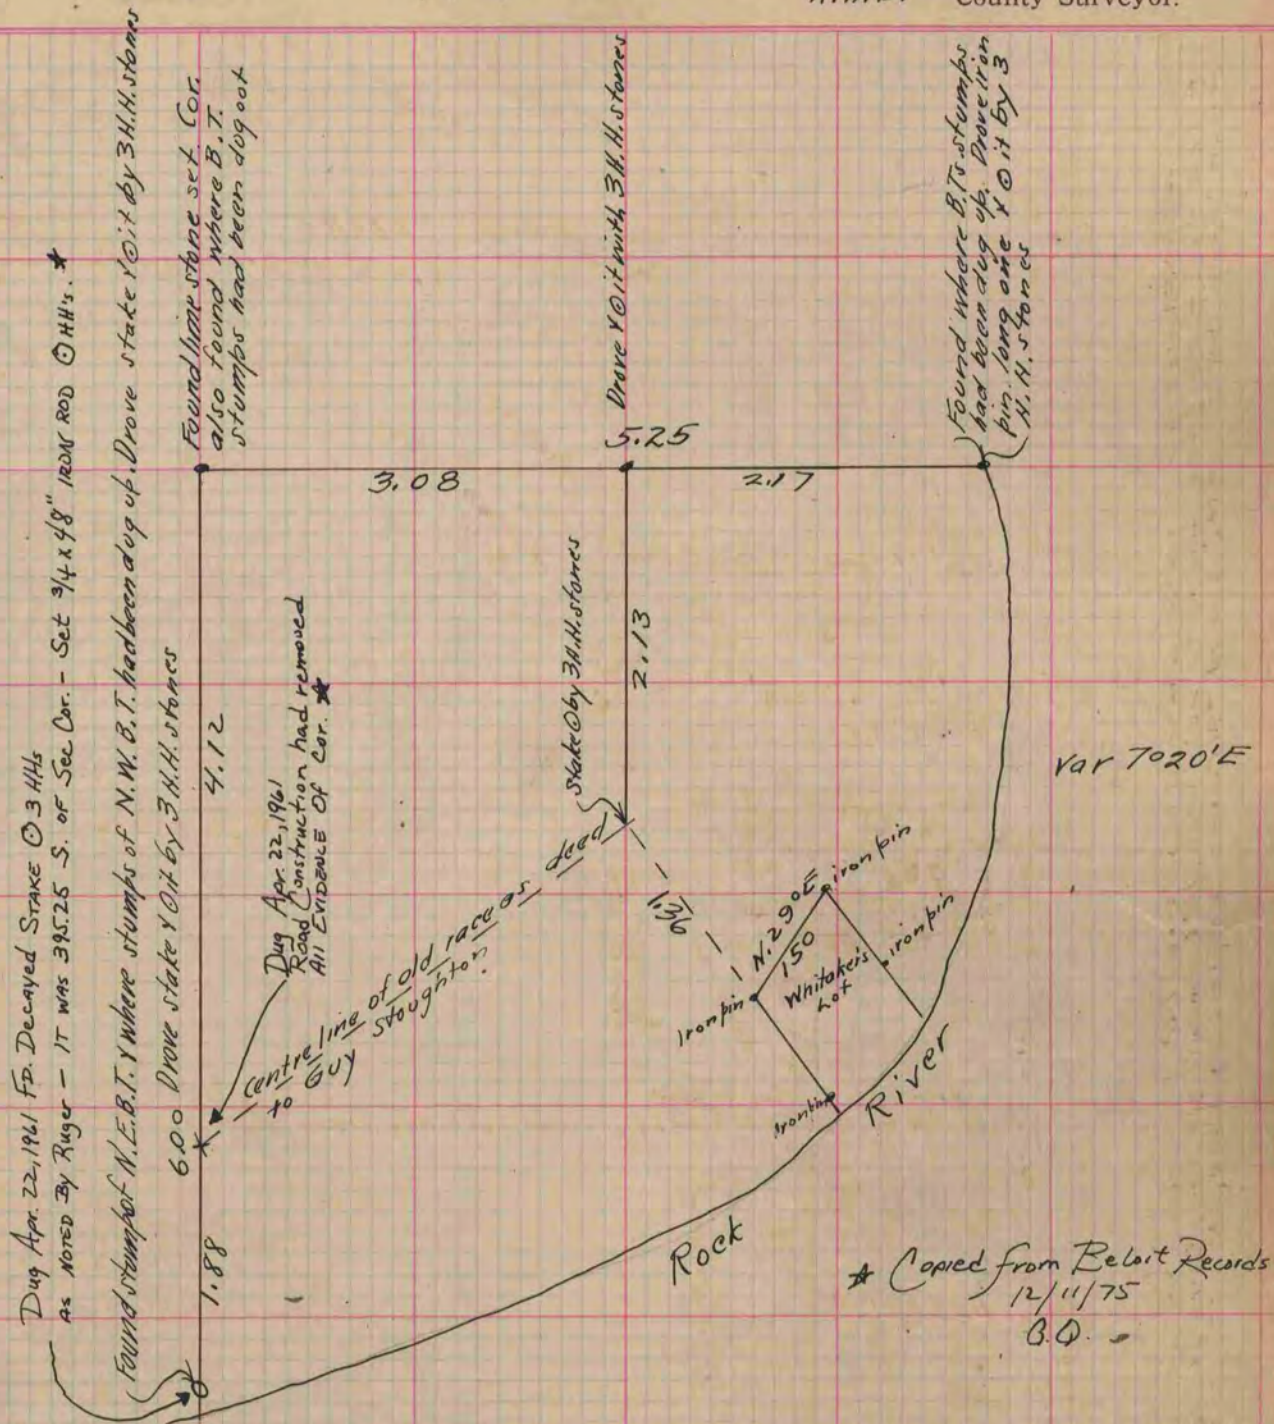 County Surveyor.
Dug Apr. 22, 1961 FD. Decayed STAKE ⊙ 3 HHs
AS NOTED By Ruger - IT WAS 395.25 S. OF Sec Cor. - Set 3/4 x 48" IRON ROD ⊙ HH's. ★
Found stump of N.E.B.T. & where stumps of N.W.B.T. had been dug up. Drove stake & ⊙ it by 3 H.H. stones
6.00 Drove stake & ⊙ it by 3 H.H. stones
Found lime stone set Cor.
also found where B.T.
stumps had been dug oot
Drove & ⊙ it with 3 H.H. stones
Found where B.Ts stumps
had been dug up. Drove iron
pin. long one & ⊙ it by 3
H.H. stones
5.25
3.08
2.17
4.12
2.13
Stake ⊙ by 3 H.H. stones
Dug Apr. 22, 1961
Road Construction had removed
All EVIDENCE Of Cor. ★
Var 7°20'E
Centre line of old race as deed
to Guy Stoughton.
1.36
N. 29° E
150
iron pin
iron pin
Whitaker's
Lot
Iron pin
Iron pin
River
Rock
1.88
★ Copied from Beloit Records
12/11/75